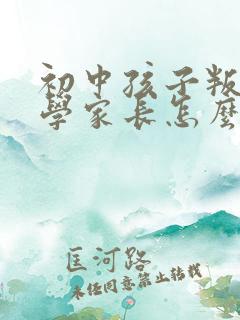 初中孩子叛
學家长怎麽
匡河路
未经同意禁止转载